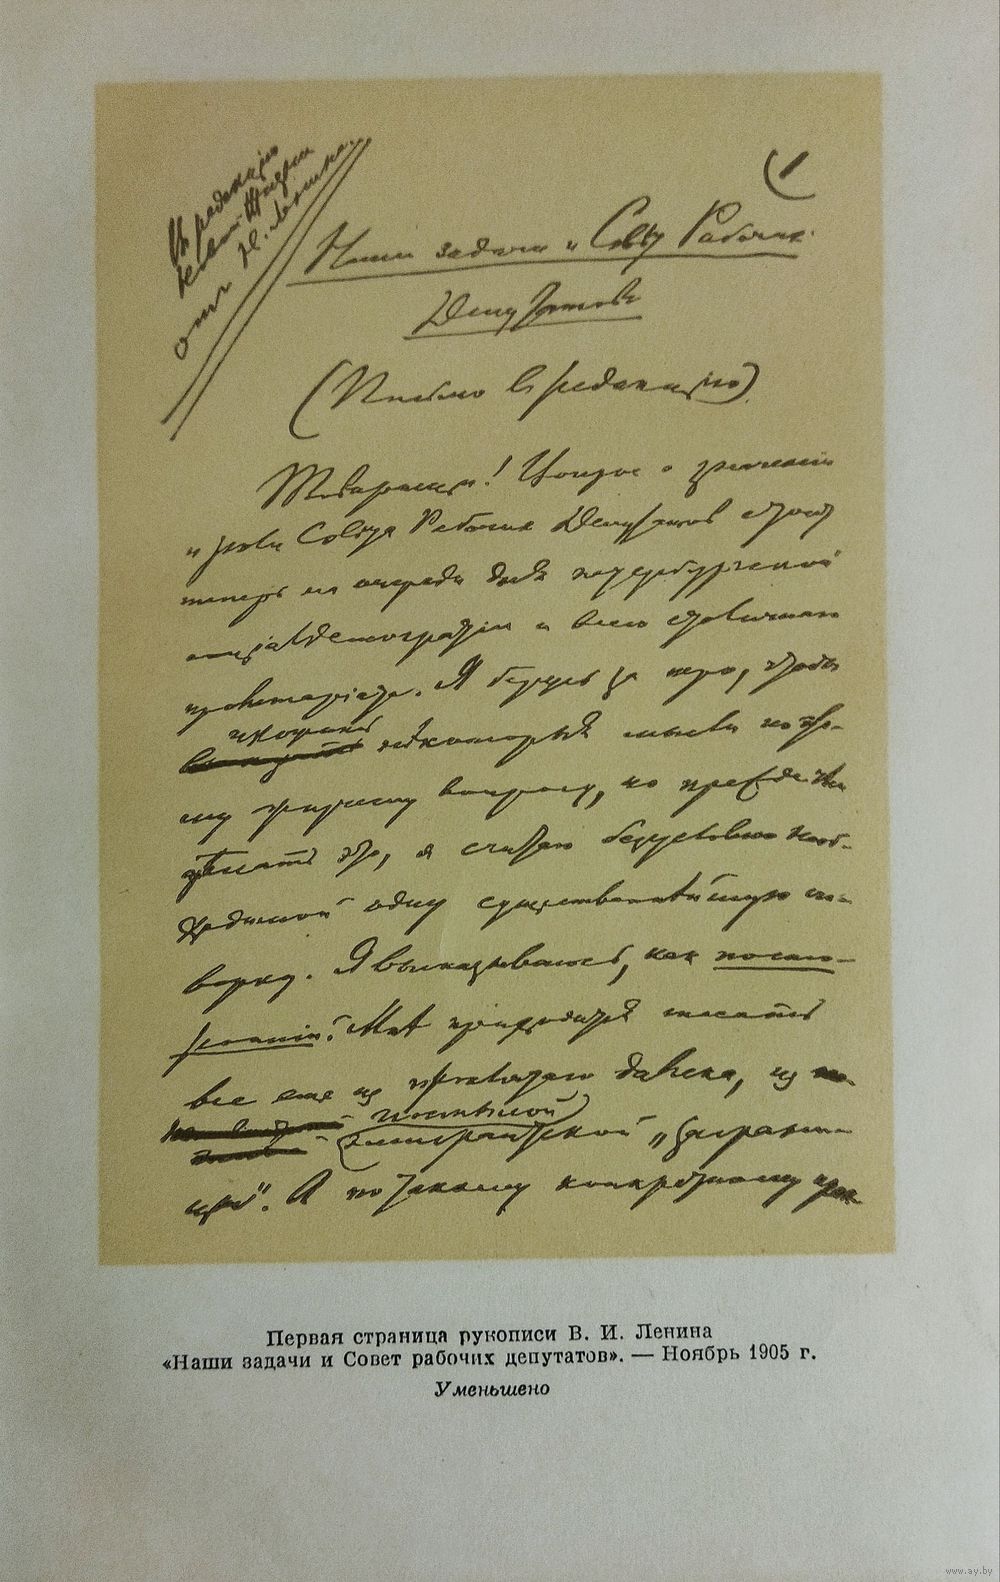 Въ редакцію
Новой Жизни
отъ Н. Ленина.
1
Наши задачи и Совѣтъ Рабочихъ
Депутатовъ
(Письмо въ редакцію)
Товарищи! Вопрос о значеніи
и роли Совѣта Рабочих Депутатов стоит
теперь на очереди дня петербургской
соціалдемократіи и всего столичнаго
пролетаріата. Я берусь за перо, чтобы
изложить
нѣкоторыя мысли по это-
му жгучему вопросу, но прежде чѣм
дѣлать это, я считаю безусловно необ-
ходимой одну существеннѣйшую ого-
ворку. Я высказываюсь, как посто-
ронній. Мнѣ приходится писать
все еще из проклятаго далека, из
постылой
эмигрантской „заграни-
цы". А по такому конкретному
Первая страница рукописи В. И. Ленина
«Наши задачи и Совет рабочих депутатов». — Ноябрь 1905 г.
Уменьшено
www.ay.by